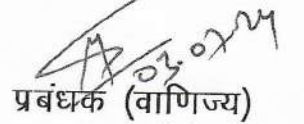 03.07.24
प्रबंधक (वाणिज्य)